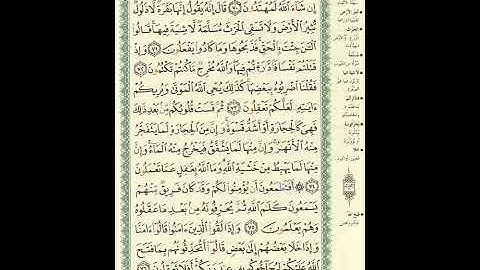 إِن شَاءَ اللَّهُ لَمُهْتَدُونَ ۝٧٠ قَالَ إِنَّهُ يَقُولُ إِنَّهَا بَقَرَةٌ لَّا ذَلُولٌ
تُثِيرُ الْأَرْضَ وَلَا تَسْقِي الْحَرْثَ مُسَلَّمَةٌ لَّا شِيَةَ فِيهَا قَالُوا
الْآنَ جِئْتَ بِالْحَقِّ فَذَبَحُوهَا وَمَا كَادُوا يَفْعَلُونَ ۝٧١ وَإِذْ
قَتَلْتُمْ نَفْسًا فَادَّارَأْتُمْ فِيهَا وَاللَّهُ مُخْرِجٌ مَّا كُنتُمْ تَكْتُمُونَ ۝٧٢
فَقُلْنَا اضْرِبُوهُ بِبَعْضِهَا كَذَٰلِكَ يُحْيِ اللَّهُ الْمَوْتَىٰ وَيُرِيكُمْ
آيَاتِهِ لَعَلَّكُمْ تَعْقِلُونَ ۝٧٣ ثُمَّ قَسَتْ قُلُوبُكُم مِّن بَعْدِ ذَٰلِكَ
فَهِيَ كَالْحِجَارَةِ أَوْ أَشَدُّ قَسْوَةً وَإِنَّ مِنَ الْحِجَارَةِ لَمَا يَتَفَجَّرُ
مِنْهُ الْأَنْهَارُ وَإِنَّ مِنْهَا لَمَا يَشَّقَّقُ فَيَخْرُجُ مِنْهُ الْمَاءُ وَإِنَّ
مِنْهَا لَمَا يَهْبِطُ مِنْ خَشْيَةِ اللَّهِ وَمَا اللَّهُ بِغَافِلٍ عَمَّا تَعْمَلُونَ
۝٧٤ ۞ أَفَتَطْمَعُونَ أَن يُؤْمِنُوا لَكُمْ وَقَدْ كَانَ فَرِيقٌ مِّنْهُمْ
يَسْمَعُونَ كَلَامَ اللَّهِ ثُمَّ يُحَرِّفُونَهُ مِن بَعْدِ مَا عَقَلُوهُ
وَهُمْ يَعْلَمُونَ ۝٧٥ وَإِذَا لَقُوا الَّذِينَ آمَنُوا قَالُوا آمَنَّا
وَإِذَا خَلَا بَعْضُهُمْ إِلَىٰ بَعْضٍ قَالُوا أَتُحَدِّثُونَهُم بِمَا فَتَحَ
اللَّهُ عَلَيْكُمْ لِيُحَاجُّوكُم بِهِ عِندَ رَبِّكُمْ أَفَلَا تَعْقِلُونَ